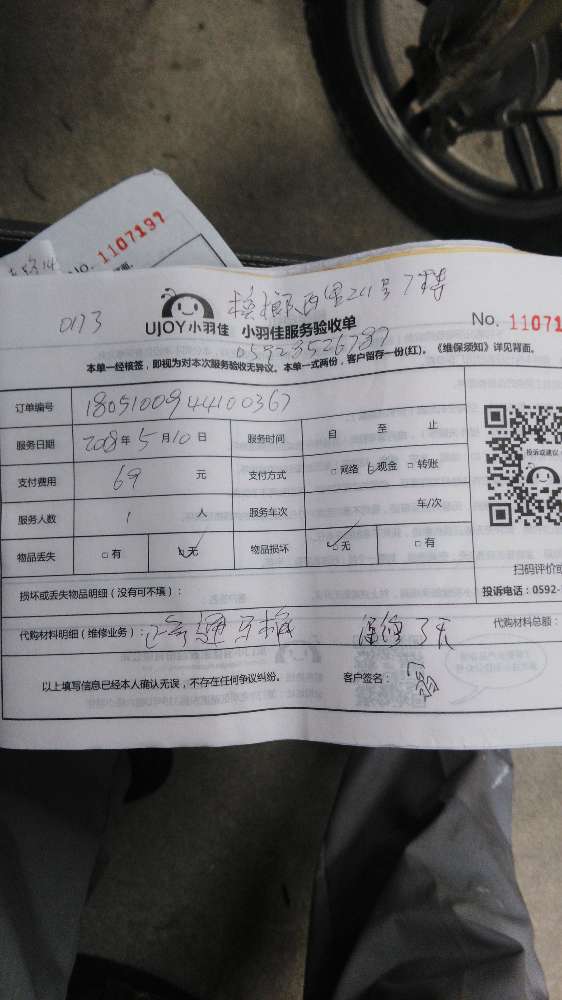 No. 1107197
0173
槟榔西里211号7楼
UJOY小羽佳 小羽佳服务验收单
No. 11071
05923526787
本单一经核签，即视为对本次服务验收无异议。本单一式两份，客户留存一份(红)。《维保须知》详见背面。
订单编号 1805100944100367
服务日期 2018年5月10日 服务时间 自 至 止
支付费用 69 元 支付方式 □网络 □现金 □转账
服务人数 1 人 服务车次 车/次
物品丢失 □有 □无 物品损坏 □无 □有
投诉或建议
扫码评价或
投诉电话：0592-
损坏或丢失物品明细（没有可不填）：
代购材料明细（维修业务）： 疏通马桶 保修3天 代购材料总额：
以上填写信息已经本人确认无误，不存在任何争议纠纷。 客户签名：